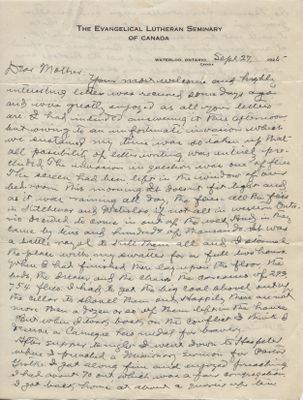 THE EVANGELICAL LUTHERAN SEMINARY
OF CANADA
WATERLOO, ONTARIO Sept 27, 1925
CANADA
Dear Mother,
Your most welcome and highly
interesting letter was received some days ago
and was greatly enjoyed as all your letters
are. I had intended answering it this afternoon
but owing to an unfortunate invasion which
we sustained my time was so taken up that
all possibility of letter writing was entirely pre-
cluded. The invasion in question was one of flies.
The screen had been left in the window of our
bed room this morning it doesn't fit tight and
as it was raining all day, the flies all the flies
in Kitchener and Waterloo if not all in western Onta-
rio decided to come in out of the wet. And in they
came by tens and hundreds of thousands. It was
a battle royal to kill them all and I stormed
the place with my swatter for a full two hours
until I had finished them. Heaped upon the floor, the
beds, the dresser and the chairs the corpses of 289,
754 flies. I had to get the big coal shovel out of
the cellar to shovel them out. Happily there are not
more than a dozen or so of them left in the house.
But when I look back on the conflict I think I
deserve a Carnegie hero medal for bravery.
After supper tonight I went down to Hespeler
where I preached a Missionary sermon for Pastor
I got along fine and enjoyed preaching
I had about 70 out which was a fair congregation
I got back home at about a quarter up ten